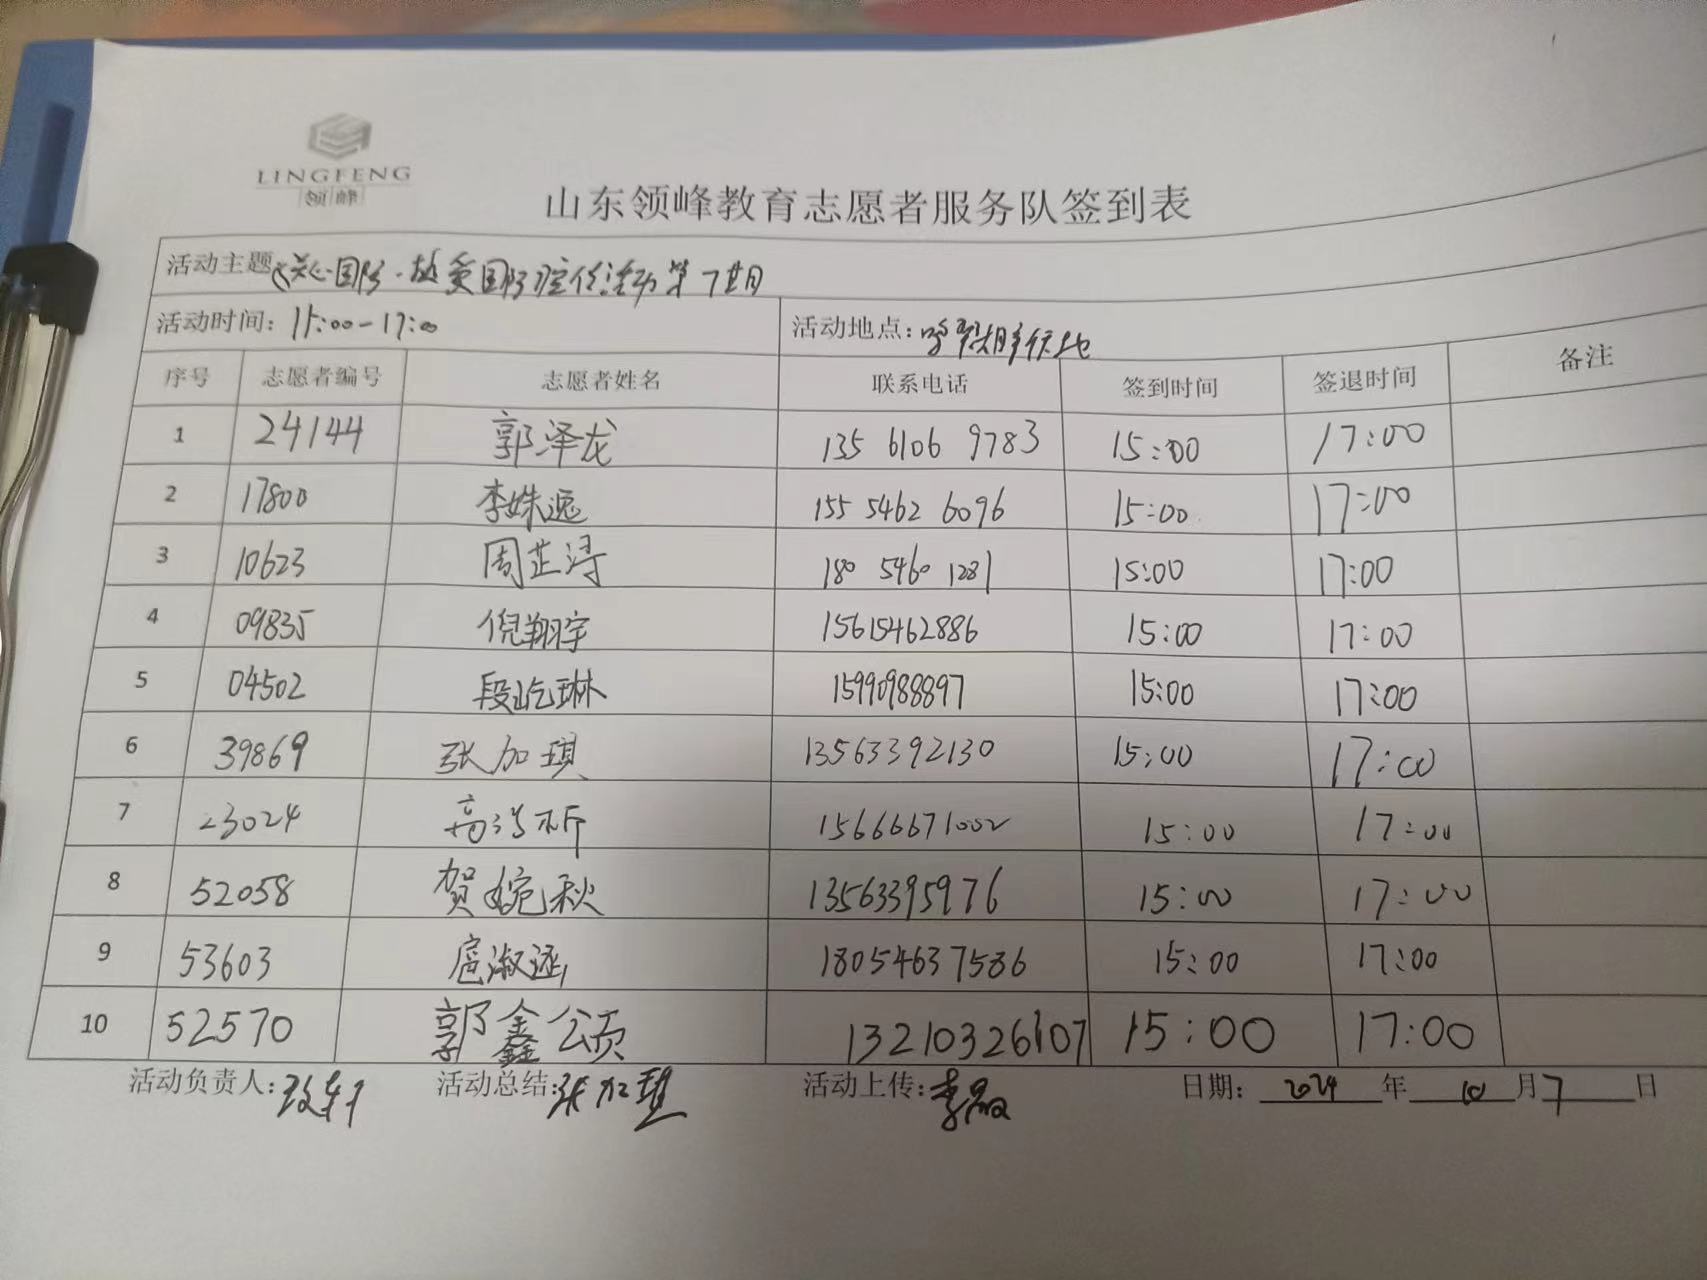 LINGFENG
领峰
山东领峰教育志愿者服务队签到表
活动主题 关心国防·热爱国防宣传活动第7期
活动时间: 15:00-17:00 活动地点:
序号 志愿者编号 志愿者姓名 联系电话 签到时间 签退时间 备注
1 24144 郭泽龙 135 6106 9783 15:00 17:00
2 17800 李姝逸 155 5462 6096 15:00 17:00
3 10623 周芷浔 180 5460 1281 15:00 17:00
4 09835 倪翔宇 15615462886 15:00 17:00
5 04502 段屹琳 15990988897 15:00 17:00
6 39869 张加琪 13563392130 15:00 17:00
7 23024 高 15666671002 15:00 17:00
8 52058 贺婉秋 13563395976 15:00 17:00
9 53603 扈淑涵 18054637586 15:00 17:00
10 52570 郭鑫颂 13210326107 15:00 17:00
活动负责人: 活动总结:张加琪 活动上传: 日期: 2024 年 10 月 7 日